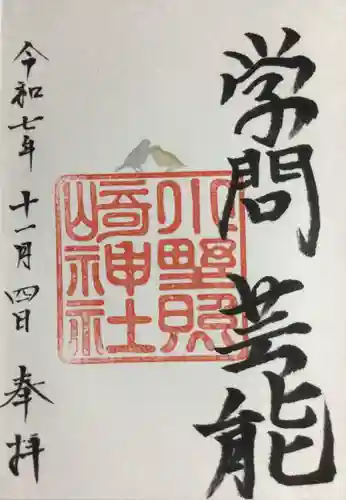 学問 芸能
小野照
崎神社
令和七年 十一月四日 奉拝